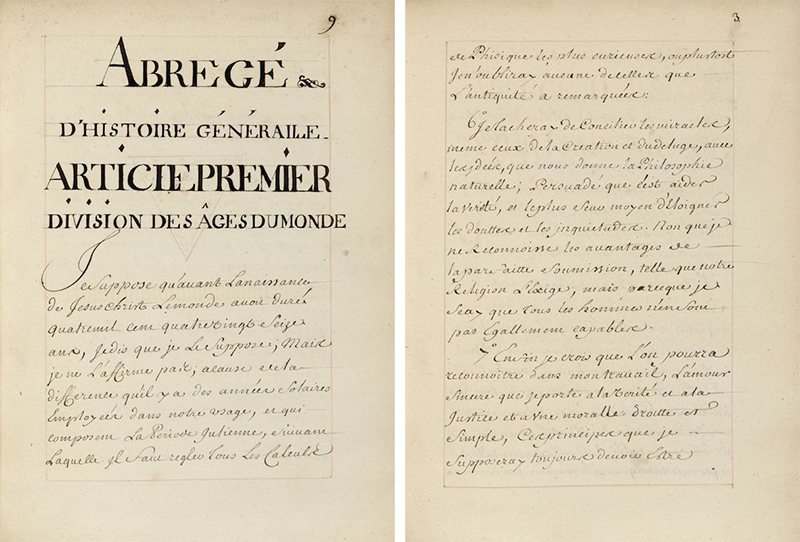 9
ABREGÉ
D'HISTOIRE GÉNÉRAILE
ARTICLE PREMIER
DIVISION DES ÂGES DU MONDE
Je Suppose qu'avant La naissance
de Jesus Christ Le monde avoit duré
quatremil cent quatrevingt Seize
ans, Je dis que je Le Suppose; Mais
je ne L'affirme pas; acause de la
differente qu'il y a des années Solaires
Employées dans notre usage, et qui
composent La Periode Julienne, Suivant
Laquelle Il faut regler tous Les Calculs
3
de Phisique les plus curieuses, ou plustost
Jen'oubliray aucune de celles que
L'antiquité a remarquées.
6.º Je tacheray de Concilier les miracles,
meme ceux de la Creation et du deluge, avec
les jdées, que nous donne la Philosophie
naturelle; Persuadé que c'est aider
la verité, et le plus Seur moyen d'Eloigner
les douttes et les jnquietudes. Non que je
ne Reconnoisse les avantages de
la parfaitte Soumission, telle que notre
Religion L'Exige, mais parceque je
Scay que tous les hommes n'en Sont
pas Egallement capables.
7.º Enfin je crois que L'on pourra
reconnoitre dans mon travail, L'amour
Sincere que je porte a la verité et a la
Justice et a une moralle droitte et
Simple, Ces principes que je
Supposeray toujours devoir Estre